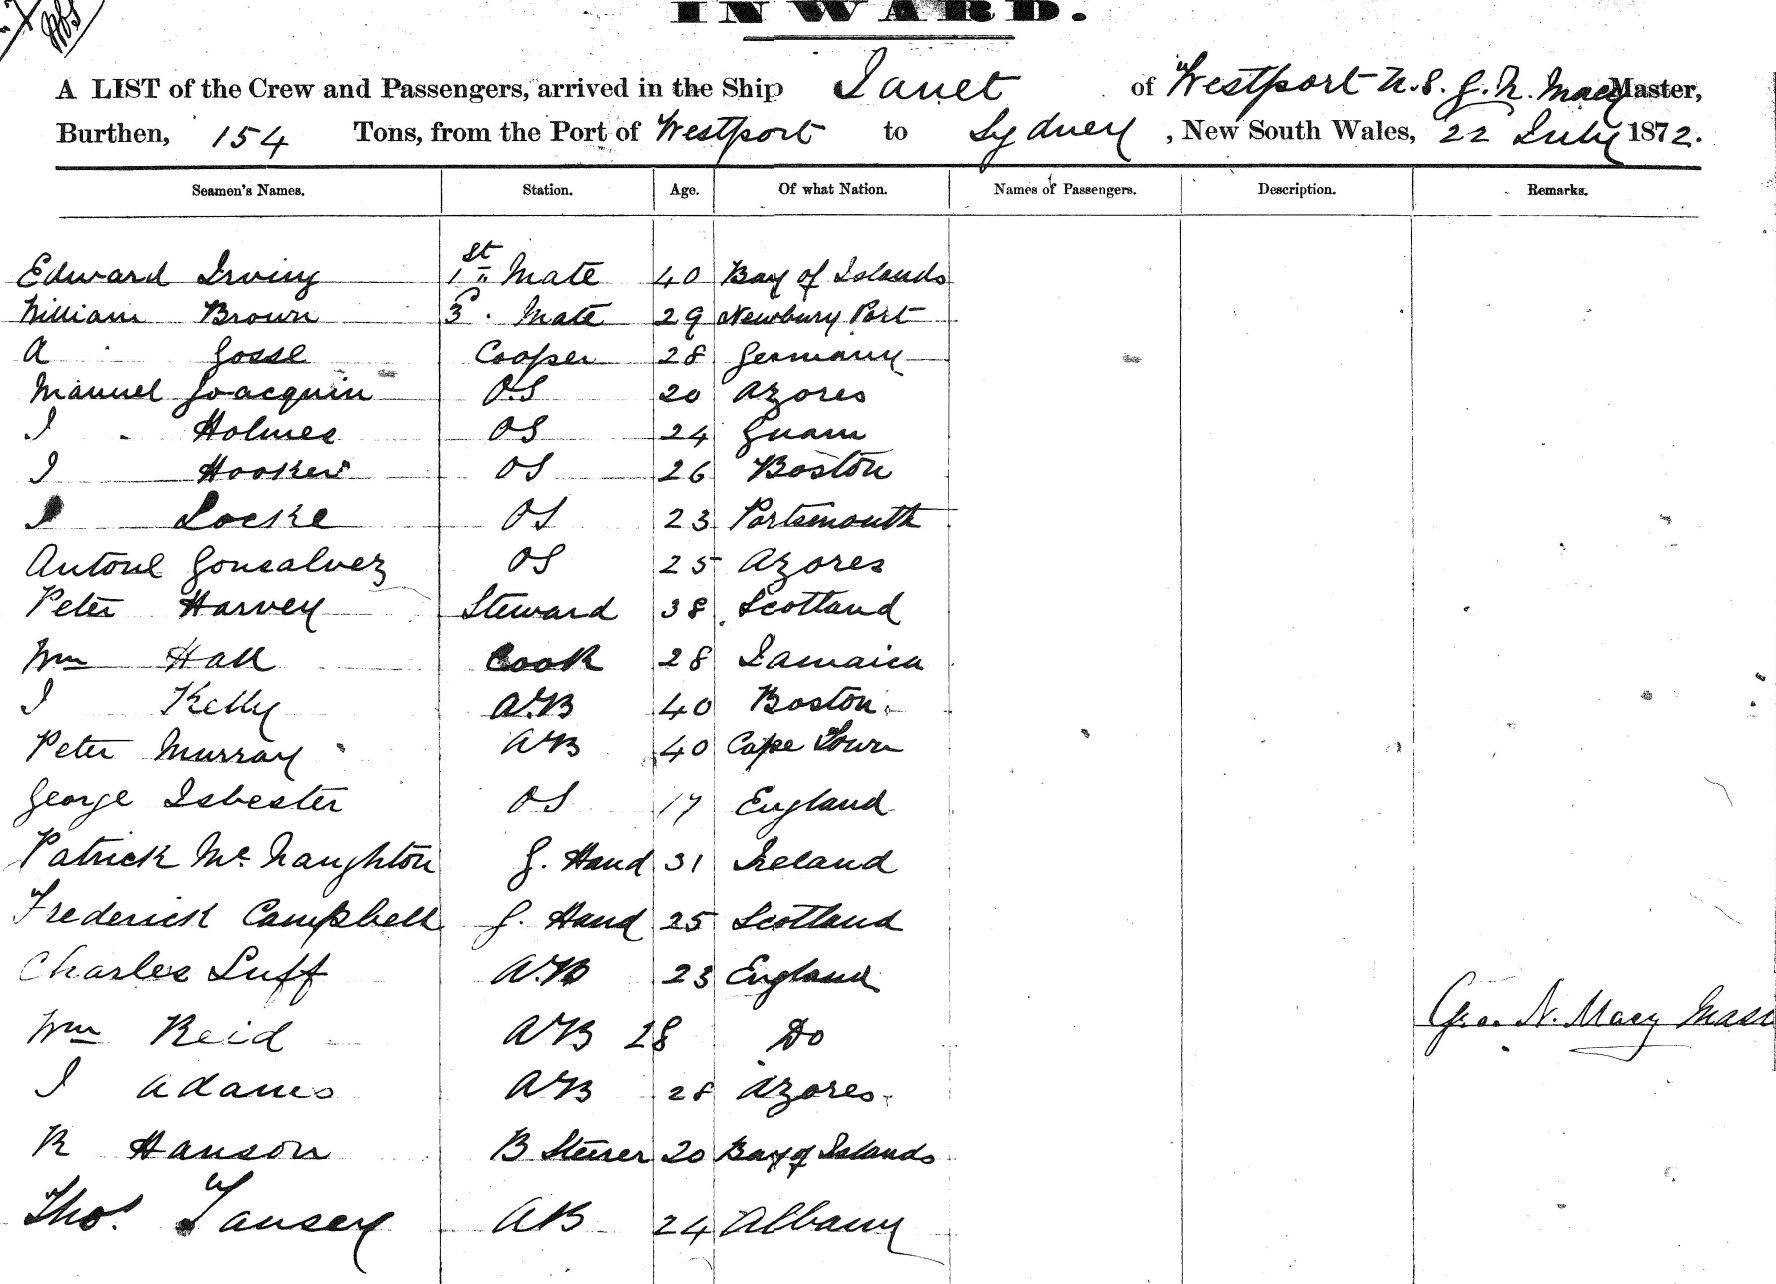 INWARD.
A LIST of the Crew and Passengers, arrived in the Ship Janet of Westport U.S. G. N. Macy Master,
Burthen, 154 Tons, from the Port of Westport to Sydney, New South Wales, 22 July 1872.
Seamen's Names. Station. Age. Of what Nation. Names of Passengers. Description. Remarks.
Edward Irving 1st Mate 40 Bay of Islands
William Brown 3d. Mate 29 Newbury Port
A Gosse Cooper 28 Germany
Manuel Joacquin O.S 20 Azores
J Holmes OS 24 Guam
J Hooker OS 26 Boston
J Locke OS 23 Portsmouth
Antone Gonsalvez OS 25 Azores
Peter Harvey Steward 38 Scotland
Wm Hall Cook 28 Jamaica
J Kelly A.B 40 Boston
Peter Murray AB 40 Cape Town
George Isbester OS 17 England
Patrick Mc Naughton G. Hand 31 Ireland
Frederick Campbell G. Hand 25 Scotland
Charles Luff A.B 23 England
Geo. N. Macy Mast
Wm Reid AB 28 Do
J Adams AB 28 Azores
R Hanson B Steerer 20 Bay of Islands
Thos. Tansey AB 24 Albany